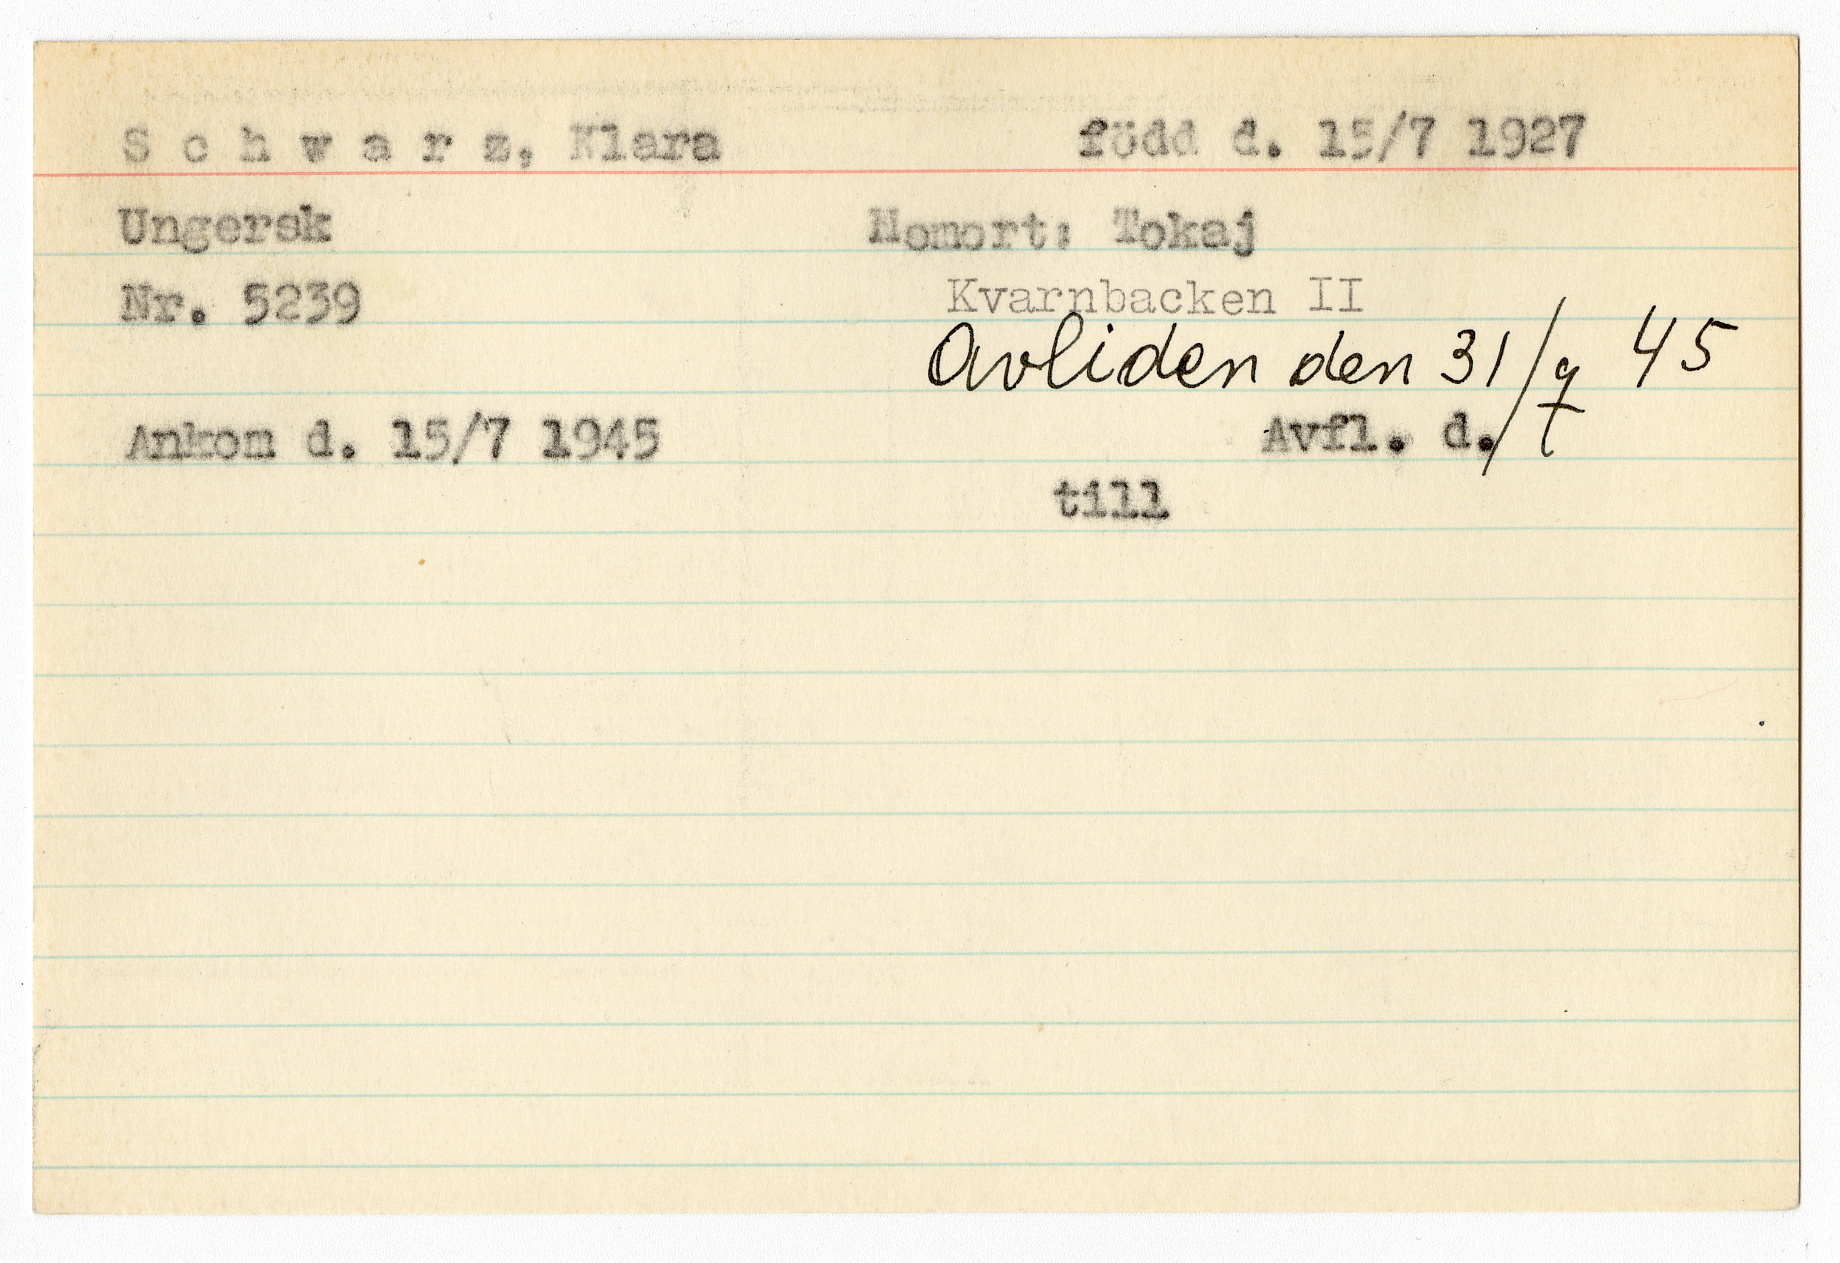 Schwarz, Klara född d. 15/7 1927
Ungersk Hemort: Tokaj
Nr. 5239 Kvarnbacken II
Avliden den 31/7 45
Ankom d. 15/7 1945 Avfl. d.
till